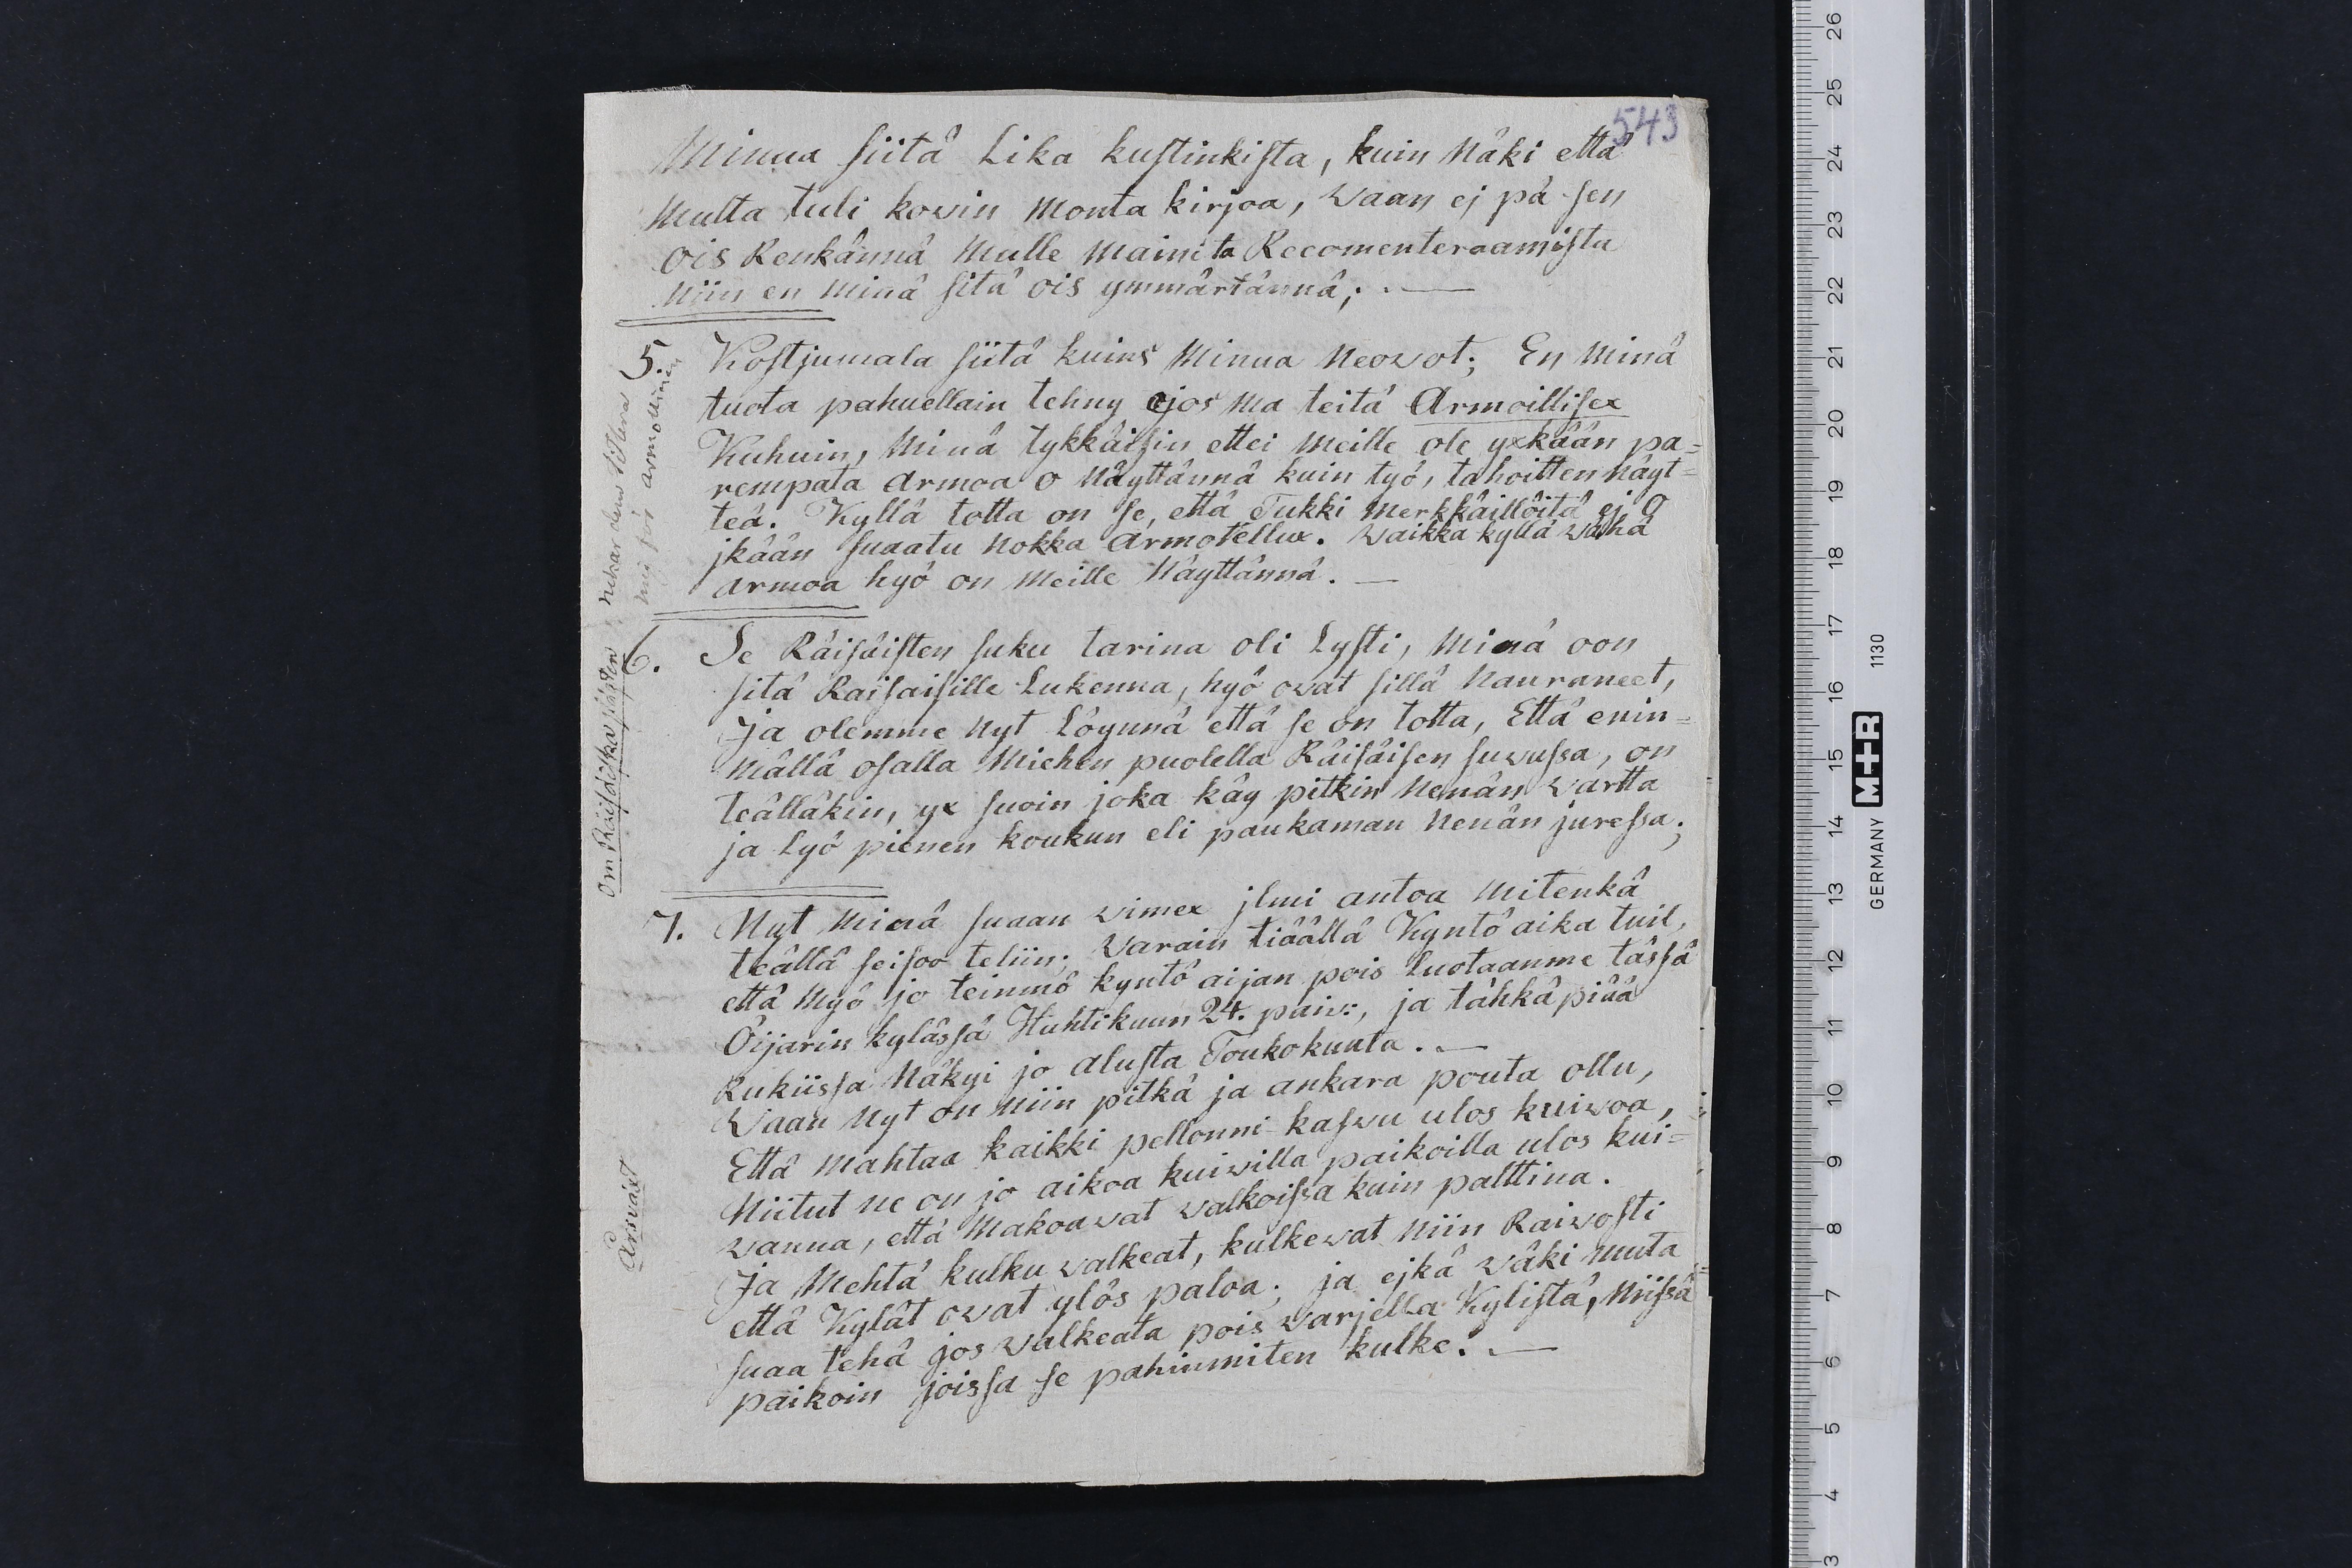 543
Minua siitä Lika kustinkista, kuin Näki että
Multa tuli kovin Monta kirjoa, Waan ej pä sen
Ois Renkännä Mulle Mainita Recomenteraamista
Niin en Minä sitä ois ymmärtännä;. —
5. Kostjumala siitä kuins Minua Neovot; En Minä
tuota pahuellain tehny ejos Ma teitä Armoillisex
Kuhuin, Minä tykkäisin ettei Meille ole yxkään pa=
rempata Armoa o Näyttännä kuin työ, tahoitten Näyt=
teä. Kyllä totta on se, että Tukki Merkkäillöitä ej o
jkään suaatu Nokka Armotellux. Waikka kyllä Wähä
Armoa hyö on Meille Näyttännä. —
6. Se Räisäisten suku tarina oli Lysti, Minä oon
sitä Raisaisille Lukenna, hyö ovat sillä Nauraneet,
Ja olemme Nyt Löynnä että se on totta, Että enin=
Mällä osalla Miehen puolella Räisäisen suvussa, on
teälläkin, yx suoin joka käy pitkin Nenän Vartta
ja Lyö pienen koukun eli paukaman Nenän juressa;
7. Nyt Minä suaan vimex jlmi antoa Mitenkä
teällä seisoo teliin; Varain tiäällä Kyntö aika tuil,
että Myö jo teimmö kyntö aijan pois Luotaanme tässä
Öijarin kylässä Huhtikuun 24. paiv:, ja tähkäpiää
Rukiissa Näkyi jo alusta Toukokuuta. —
Waan Nyt on Niin pitkä ja ankara pouta ollu,
Että Mahtaa kaikki pellonni kasvu ulos kuivoa,
Niitut ne on jo aikoa kuivilla paikoilla ulos kui=
vanna, että Makoavat valkoissa kuin palttina.
Ja Mehtä kulku valkeat, kulkevat Niin Raivosti
että Kylät ovat ylös paloa; ja ejkä väki Muuta
suaa tehä jos Valkeata pois varjella Kylistä, Niissä
paikoin joissa se pahinmiten kulke. —
Nekar dens titlera
mig för Armollinen
Om Räisälöitka
Årsväxt
GERMANY M+R 1130
26
25
24
23
22
21
20
19
18
17
16
15
14
13
12
11
10
9
8
7
6
5
4
3